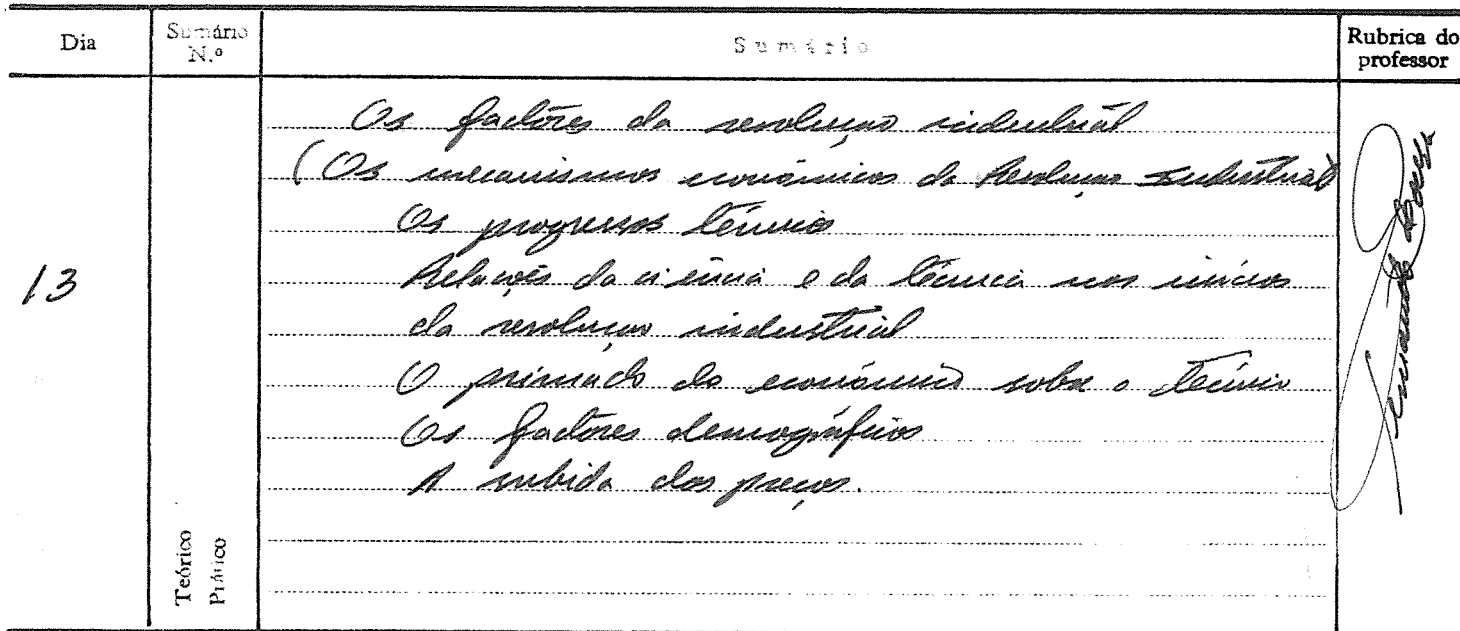 Dia
Sumário
N.º
Sumário
Rubrica do
professor
13
Os factores da revolução industrial
(Os mecanismos económicos da Revolução Industrial)
Os progressos técnico
Relações da ciência e da técnica nos inícios
da revolução industrial
O primado do económico sobre o técnico
Os factores demográficos
A subida dos preços.
Teórico
Prático